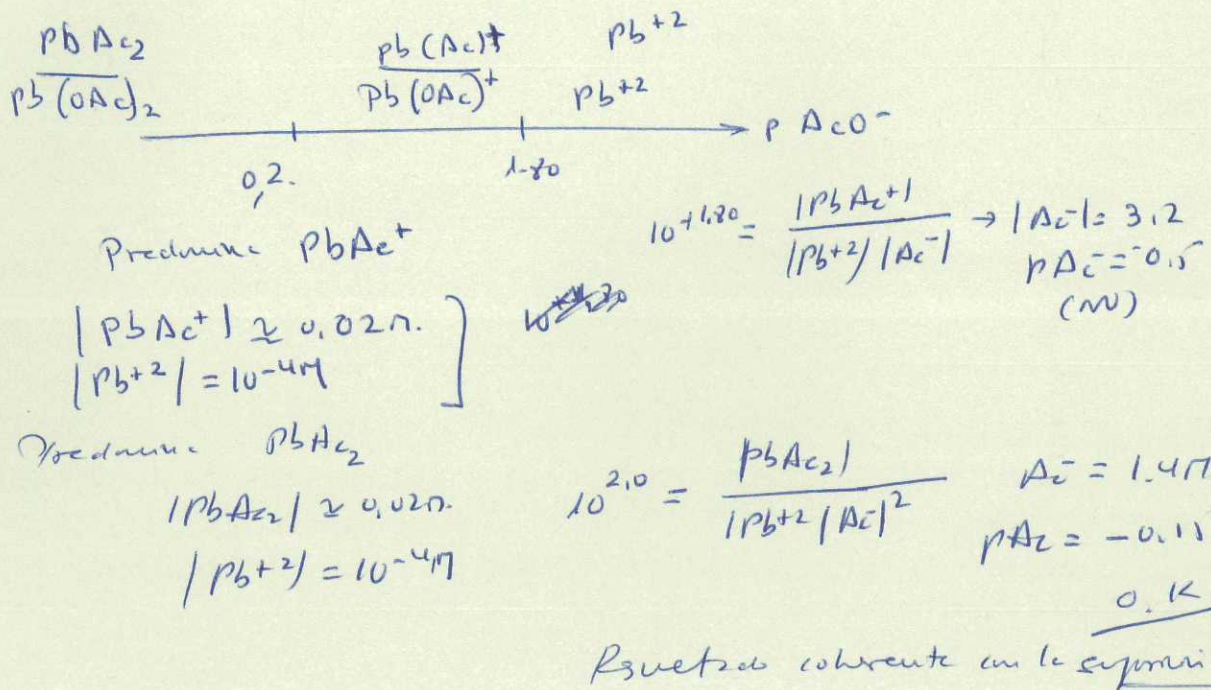 PbAc₂ Pb(Ac)⁺ Pb⁺²
Pb(OAc)₂ Pb(OAc)⁺ Pb⁺²
p AcO⁻
0,2. 1.80
Predomina PbAc⁺
10⁺¹·⁸⁰ = |PbAc⁺| / |Pb⁺²| |Ac⁻| → |Ac⁻| = 3.2
pAc⁻ = -0.5
(NO)
|PbAc⁺| ≃ 0.02M.
|Pb⁺²| = 10⁻⁴M
Predomina PbAc₂
|PbAc₂| ≃ 0,02M.
|Pb⁺²| = 10⁻⁴M
10²·⁰ = PbAc₂| / |Pb⁺²| |Ac⁻|² Ac⁻ = 1.4M
pAc = -0.15
O.K
Resultado coherente con la